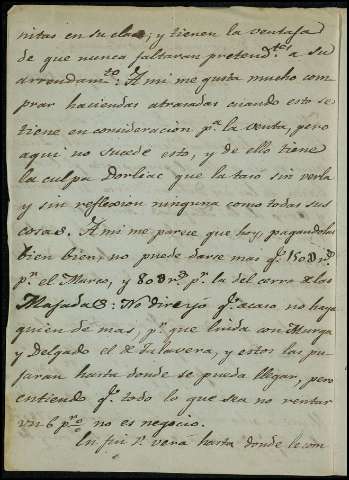 nitas en su clase; y tienen la ventaja
de que nunca faltaran pretend.tes a su
arrendam.to: A mi me gusta mucho com
prar haciendas atrasadas cuando esto se
tiene en consideracion p.a la venta, pero
aqui no sucede esto, y de ello tiene
la culpa Dorliac que la tasó sin verla
y sin reflexion ninguna como todas sus
cosas. A mi me parece que hoy, pagandolas
bien bien, no puede darse mas q.e 150
p.r el Marco, y 80 p.r la del cerro
Majadas: No diré yó q.e acaso no haya
quien de mas, p.r que linda con Murga
y Delgado el de Talavera, y estos las pu
jaran hasta donde se pueda llegar, pero
entiendo q.e todo lo que sea no rentar
un 6 p.r no es negocio.
En fin V. verá hasta donde le con